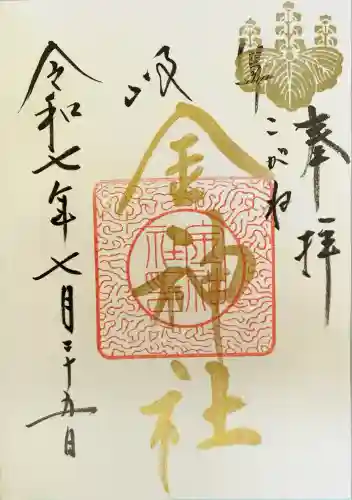 奉拝
岐阜
こがね
金神社
令和七年七月二十五日